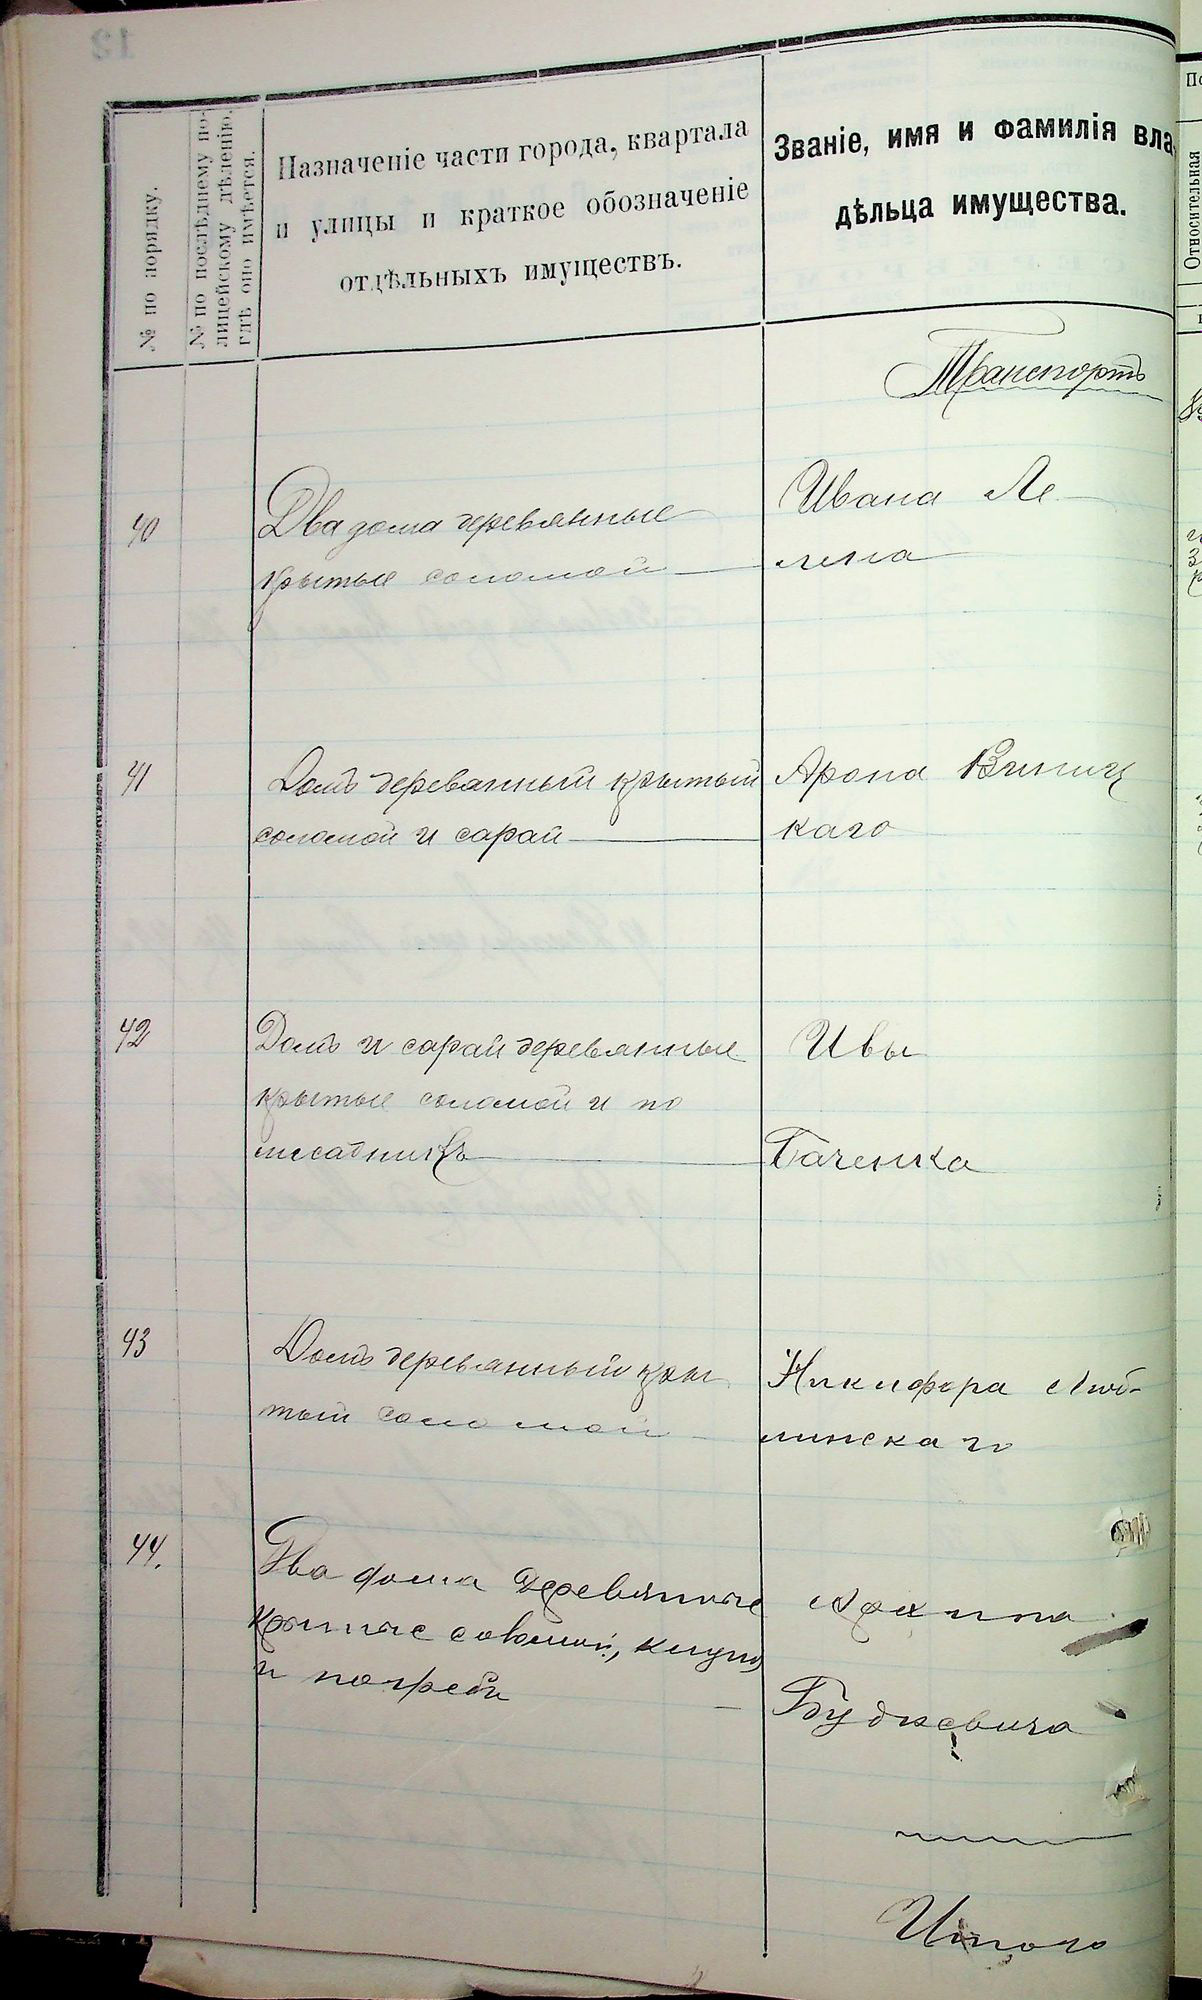 № по порядку.
№ по послѣднему по-
лицейскому дѣленію,
гдѣ оно имѣется.
Назначеніе части города, квартала
и улицы и краткое обозначеніе
отдѣльныхъ имуществъ.
Званіе, имя и фамилія вла-
дѣльца имущества.
Относительная
Транспортъ
40
Два дома деревянные
крытые соломой
Ивана Ле-
лена
41
Домъ деревянный крытый
соломой и сарай
Арона Виниц
каго
42
Домъ и сарай деревянные
крытые соломой и по
лисадникъ
Ивы
Баченка
43
Домъ деревянный кры
тый соломой
Никифора Люб-
линскаго
44.
Два дома деревянные
крытые соломой,
и погребъ
Архипа
Будкевича
Итого